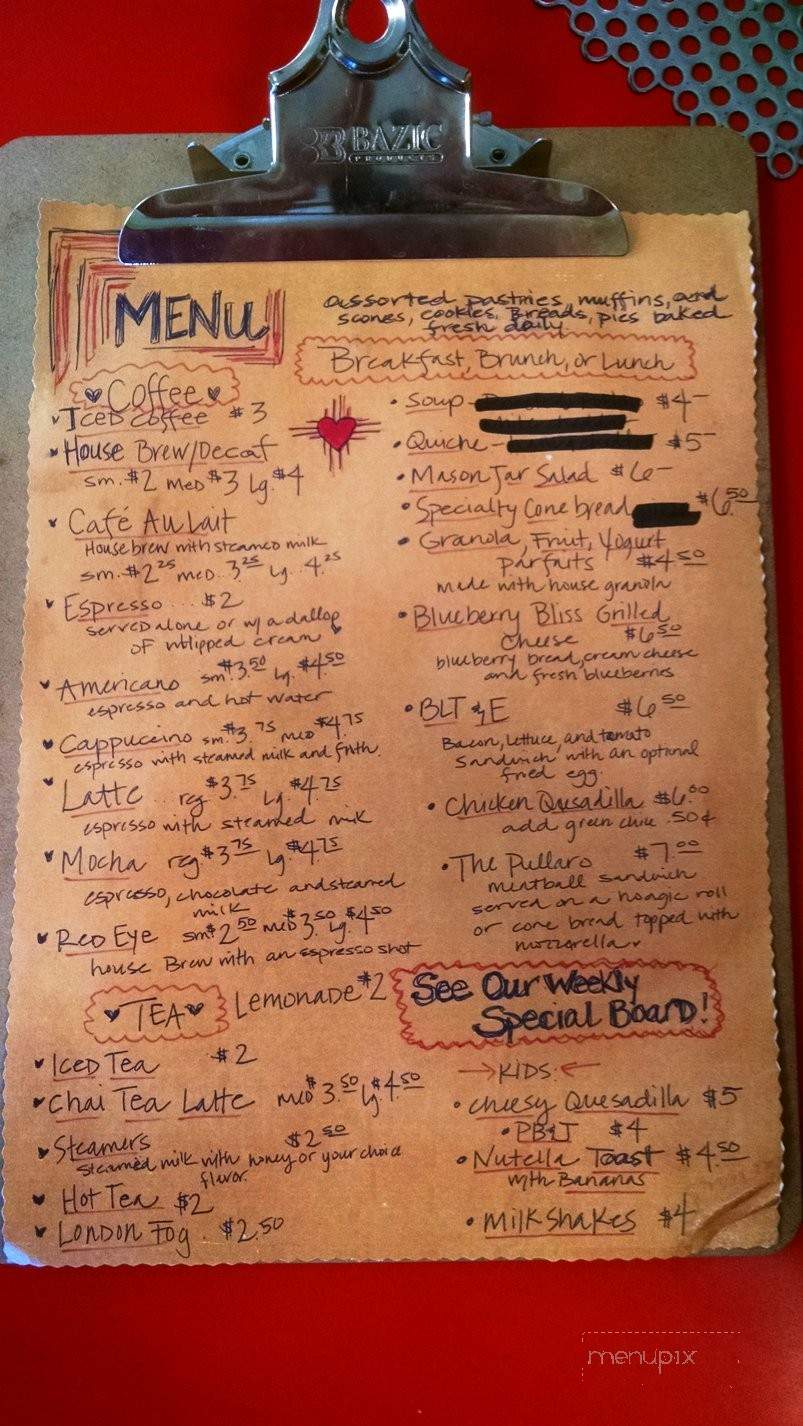 BAZIC
PRODUCTS
MENU
assorted pastries, muffins, and
scones, cookies, Breads, pies baked
fresh daily
Breakfast, Brunch, or Lunch
Coffee
Iced Coffee $3
House Brew/Decaf
sm. $2 med $3 lg. $4
Café Au Lait
House brew with steamed milk
sm. $2.25 med.. 3.25 lg.. 4.25
Espresso ... $2
served alone or w/ a dallop
of whipped cream
Americano sm. $3.50 lg. $4.50
espresso and hot water
Cappuccino sm. $3.75 med $4.75
espresso with steamed milk and froth.
Latte .. reg $3.75 lg. $4.75
espresso with steamed milk
Mocha reg $3.75 lg. $4.75
espresso, chocolate and steamed
milk
Red Eye sm. $2.50 med $3.50 lg. $4.50
house Brew with an espresso shot
TEA
Lemonade $2
Iced Tea $2
Chai Tea Latte med $3.50 lg $4.50
Steamers $2.50
steamed milk with honey or your choice
flavor.
Hot Tea $2
London Fog . $2.50
• Soup - $4-
• Quiche - $5-
• Mason Jar Salad $6-
• Specialty Cone bread $6.50
• Granola, Fruit, Yogurt
parfaits $4.50
made with house granola
• Blueberry Bliss Grilled
Cheese $6.50
blueberry bread, cream cheese
and fresh blueberries
• BLT & E $6.50
Bacon, lettuce, and tomato
Sandwich with an optional
fried egg.
• Chicken Quesadilla $6.00
add green chile .50¢
• The Pullaro $7.00
meatball sandwich
served on a hoagie roll
or cone bread topped with
mozzorella.
See Our Weekly
Special Board!
→KIDS.←
• cheesy Quesadilla $5
• PB&J $4
• Nutella Toast $4.50
with Bananas
• Milkshakes $4
menupix